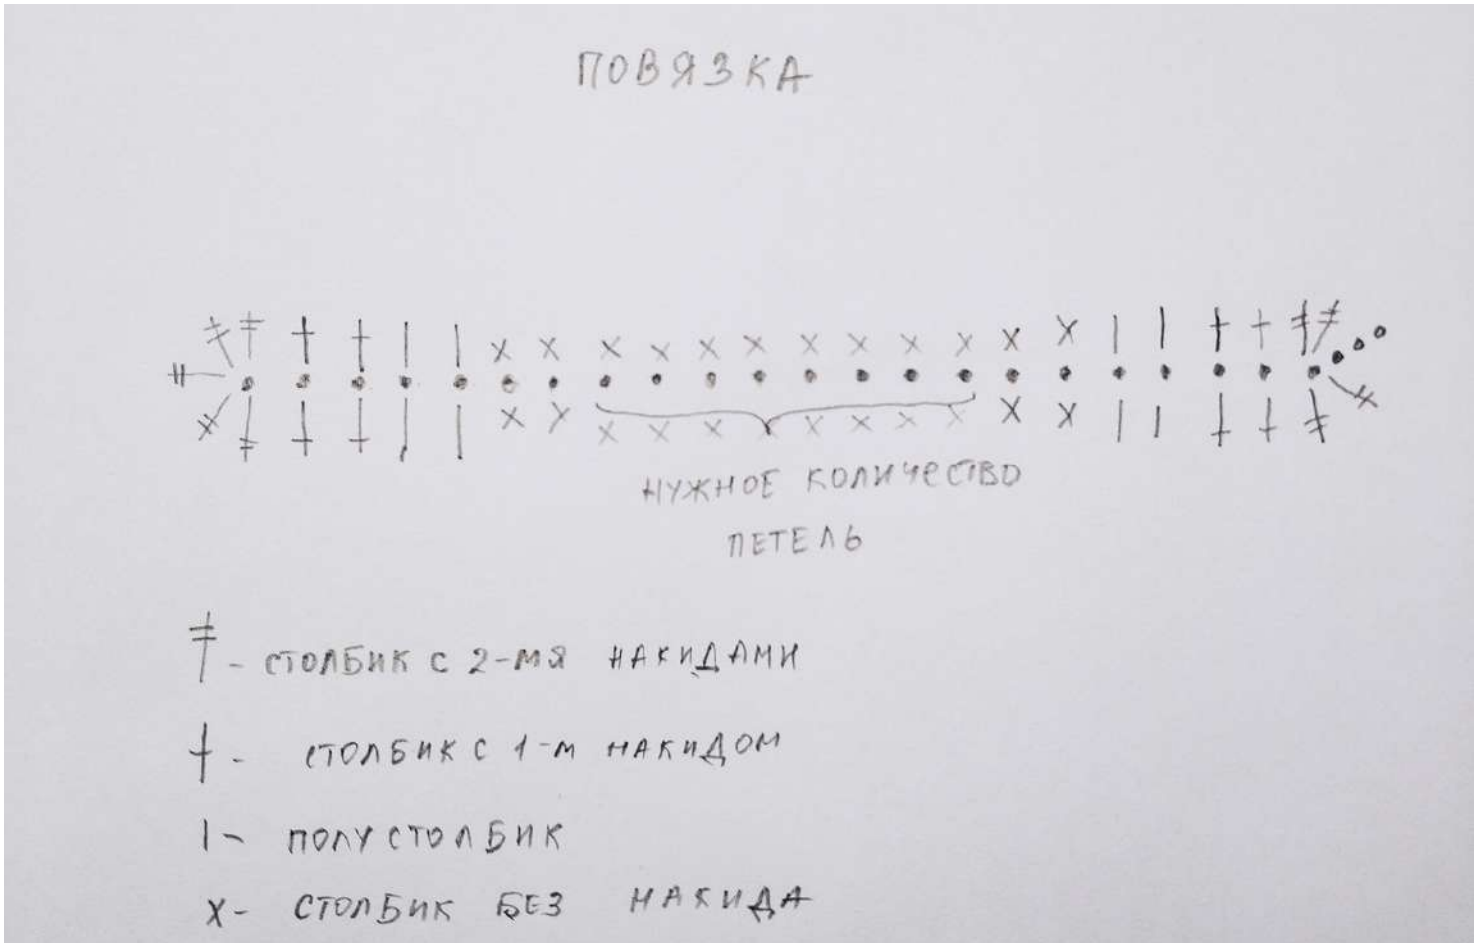 ПОВЯЗКА
НУЖНОЕ КОЛИЧЕСТВО
ПЕТЕЛЬ
- СТОЛБИК С 2-МЯ НАКИДАМИ
- СТОЛБИК С 1-М НАКИДОМ
| - ПОЛУСТОЛБИК
X - СТОЛБИК БЕЗ НАКИДА